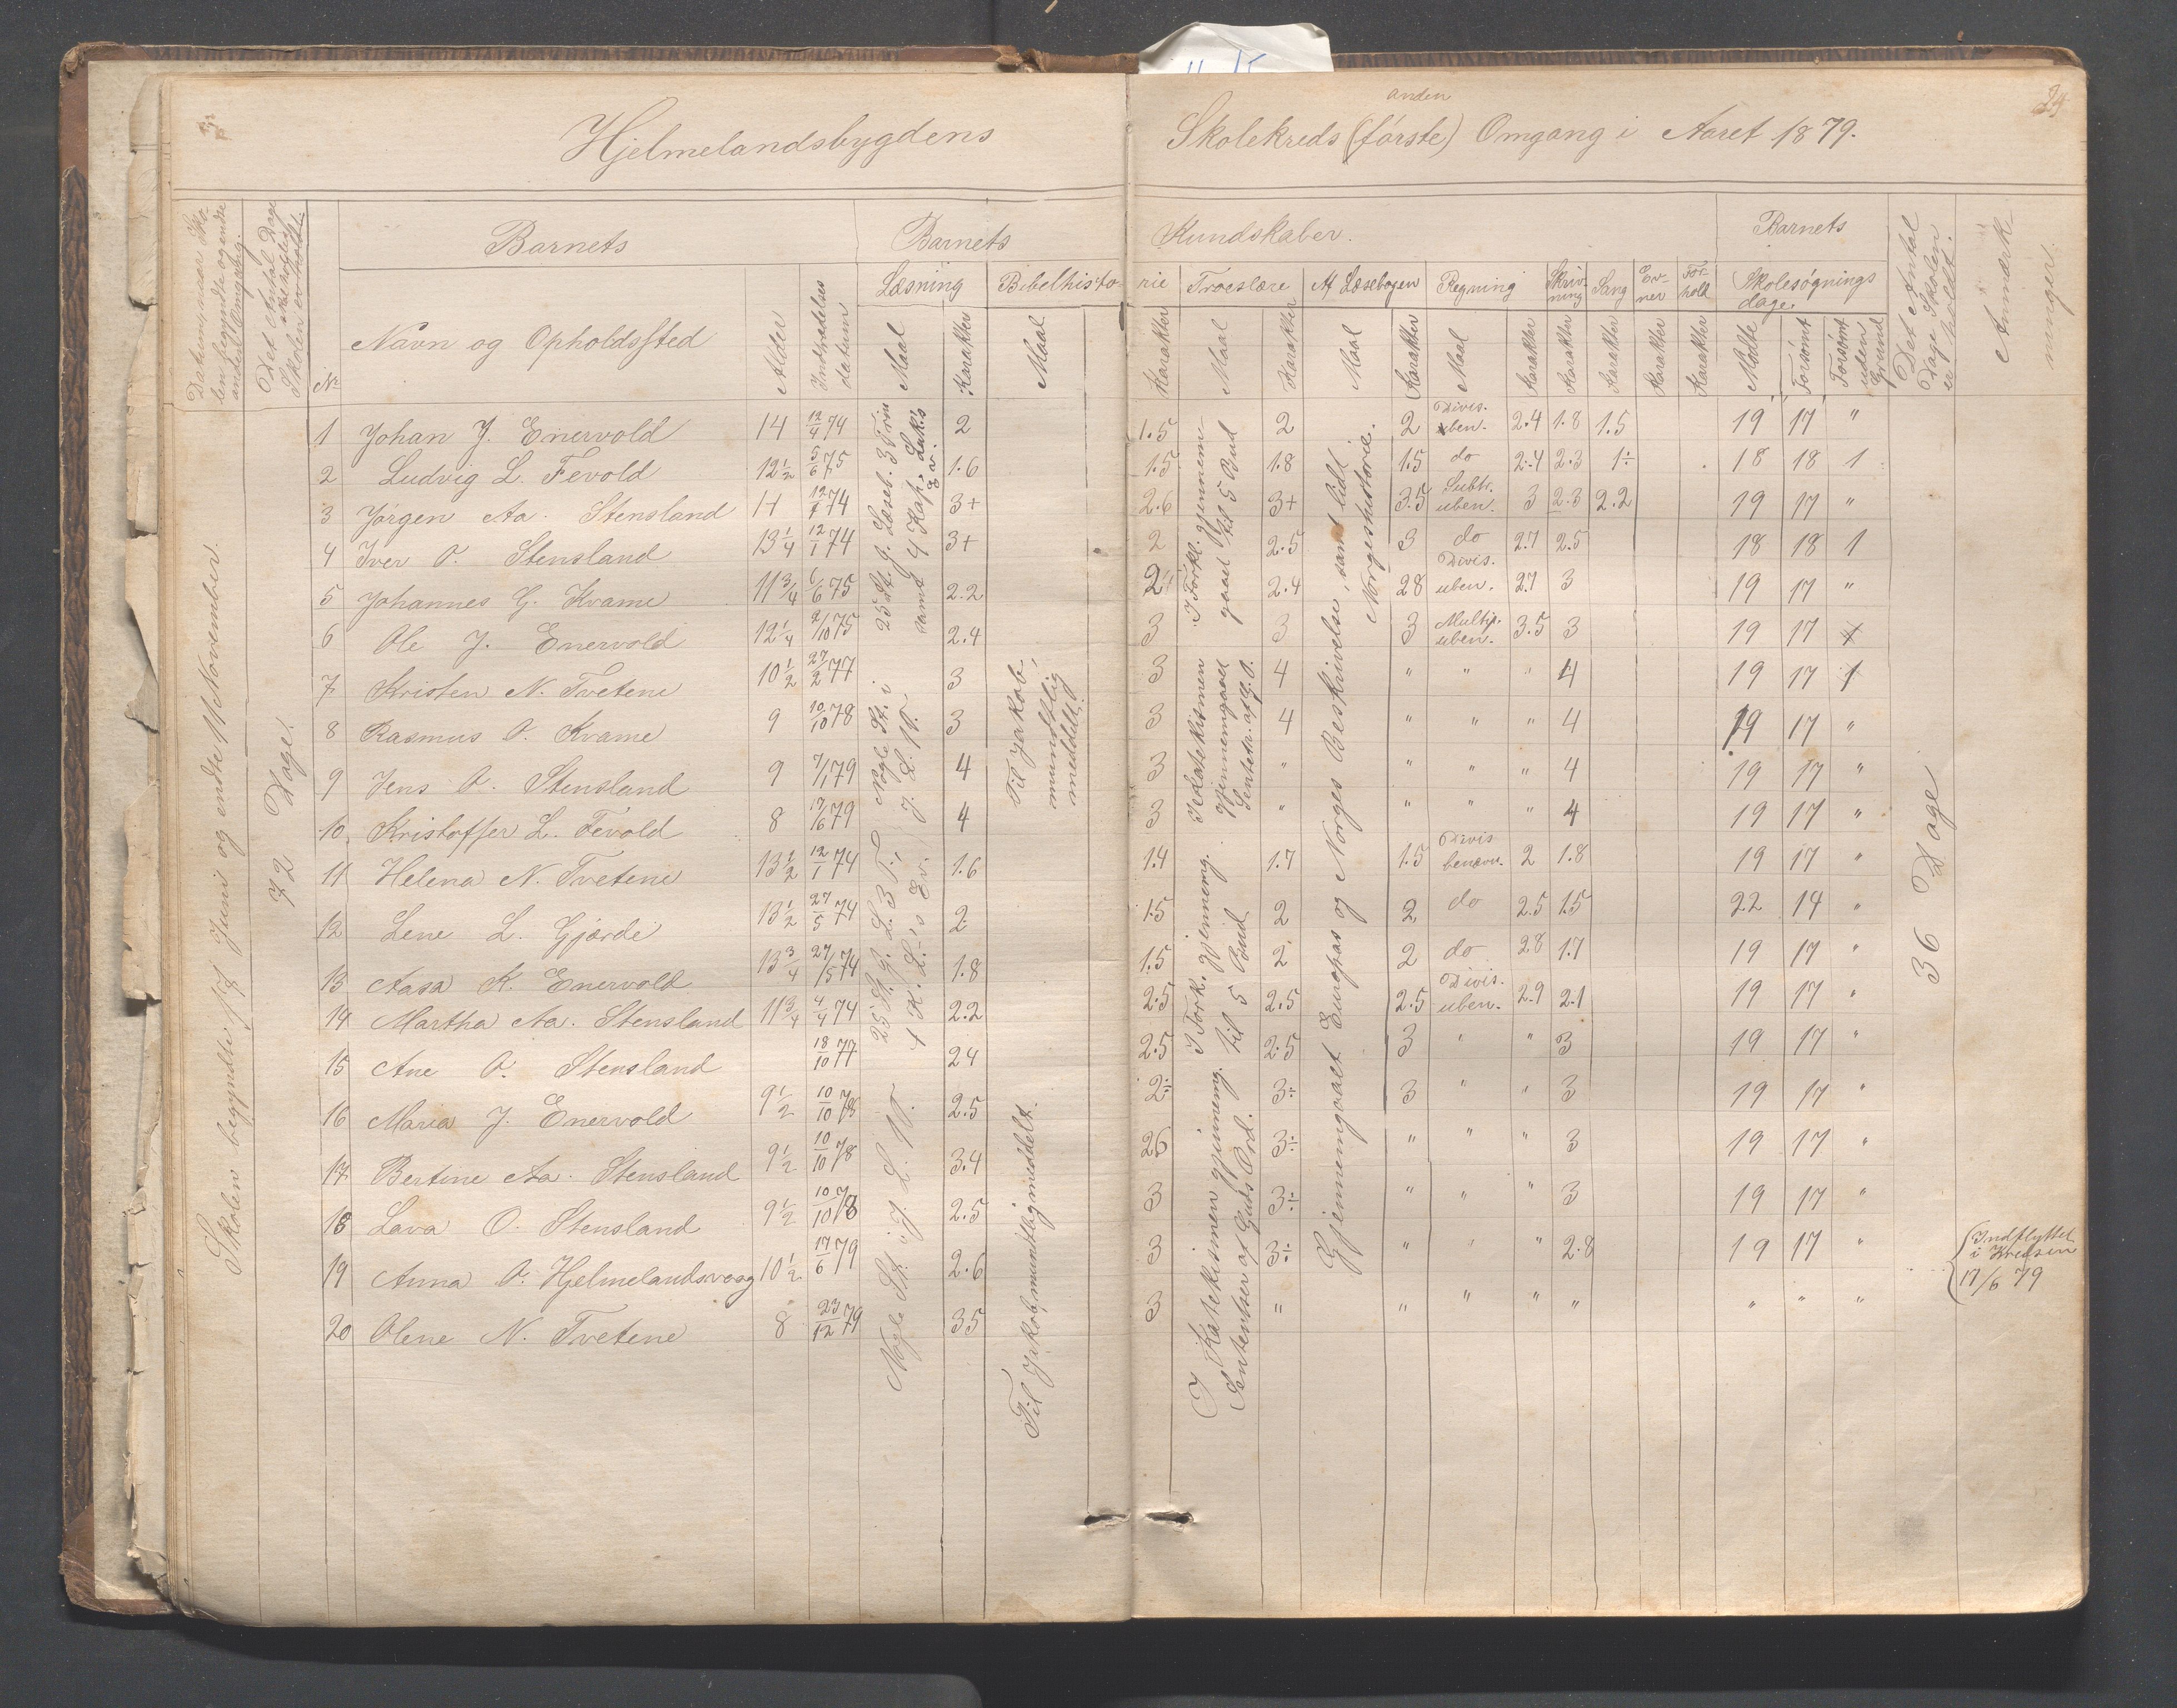 Hjelmelandsbygdens Skolekreds (første) Omgang i Aaret 1879.
anden
24
Datum, naar Skolen begyndte og endte anden Omgang.
Det Antal Dage Skolen skal holdes
No
Barnets
Navn og Opholdssted
Alder
Indtrædelses datum
Barnets Kundskaber.
Læsning
Maal
Karakter
Bibelhistorie
Maal
Karakter
Troeslære
Maal
Karakter
Af Læsebogen
Maal
Karakter
Regning
Maal
Karakter
Skrivning
Karakter
Sang
Karakter
Evner
Karakter
Forhold
Karakter
Barnets
Skolesøgnings dage.
Mødte
Forsømt
Forsømt uden Grund
Det Antal Dage Skolen er holdt.
Anmærkninger.
Skolen begyndte 17 Juni og endte 11 November.
72 Dage.
1 Johan J. Enervold 14 12/4 74 2 1.5 2 2 Divis. uben. 2.4 1.8 1.5 19 17 "
2 Ludvig L. Fevold 12½ 5/6 75 1.6 1.5 1.8 1.5 do 2.4 2.3 1÷ 18 18 1
3 Jørgen Aa. Stensland 14 12/1 74 3+ 2.6 3+ 3.5 Subtr. uben. 3 2.3 2.2 19 17 "
4 Iver O. Stensland 13¼ 12/1 74 3+ 2 2.5 3 do 2.7 2.5 18 18 1
5 Johannes G. Kvame 11¾ 6/6 75 2.2 2+ 2.4 28 Divis. uben. 2.7 3 19 17 "
6 Ole J. Enervold 12¼ 2/10 75 2.4 3 3 3 Multip. uben. 3.5 3 19 17
7 Kristen N. Tvetene 10½ 27/2 77 3 3 4 " " " 4 19 17 1
8 Rasmus O. Kvame 9 10/10 78 3 3 4 " " " 4 19 17 "
9 Jens O. Stensland 9 7/1 79 4 3 " " " " 4 19 17 "
10 Kristoffer L. Fevold 8 17/6 79 4 3 " " " " 4 19 17 "
11 Helena N. Tvetene 13½ 12/1 74 1.6 1.4 1.7 1.5 Divis benævn. 2 1.8 19 17 "
12 Lene L. Gjærde 13½ 27/5 74 2 1.5 2 2 do 2.5 1.5 22 14 "
13 Aasa K. Enervold 13¾ 27/5 74 1.8 1.5 2 2 do 2.8 1.7 19 17 "
14 Martha Aa. Stensland 11¾ 4/4 74 2.2 2.5 2.5 2.5 Divis. uben. 2.9 2.1 19 17 "
15 Ane O. Stensland 18/10 77 24 2.5 2.5 3 " " 3 19 17 "
16 Maria J. Enervold 9½ 10/10 78 2.5 2÷ 3÷ 3 " " 3 19 17 "
17 Bertine Aa. Stensland 9½ 10/10 78 3.4 26 3÷ " " " 3 19 17 "
18 Lava O. Stensland 9½ 10/10 78 2.5 3 3÷ " " " 3 19 17 "
19 Anna O. Hjelmelandsvaag 10½ 17/6 79 2.6 3 3÷ " " " 2.8 19 17 "
20 Olene N. Tvetene 8 23/12 79 35 3 " " " " " " " "
25 St. g. Læseb. 3 Trin
samt 4 Kap. Luk.s Ev.
Nogle St. i J. L.
25 St. g. L. 3 T.,
4 K. L.'s Ev.
Nogle St. i J. L.
Til Jakob, mundtlig meddelt.
Til Jakob, mundtlig meddelt.
I Forkl. gjennemgaaet til 5 Bud
I Katekismen gjennemgaaet Sentenser af G. O.
I Fork. gjennemg. til 5 Bud
I Katekismen gjennemg. Sentenser af Guds Ord.
Gjennemgaaet Europas og Norges Beskrivelse, samt lidt Norgeshistorie.
36 Dage
Indflyttet i Kredsen 17/6 79